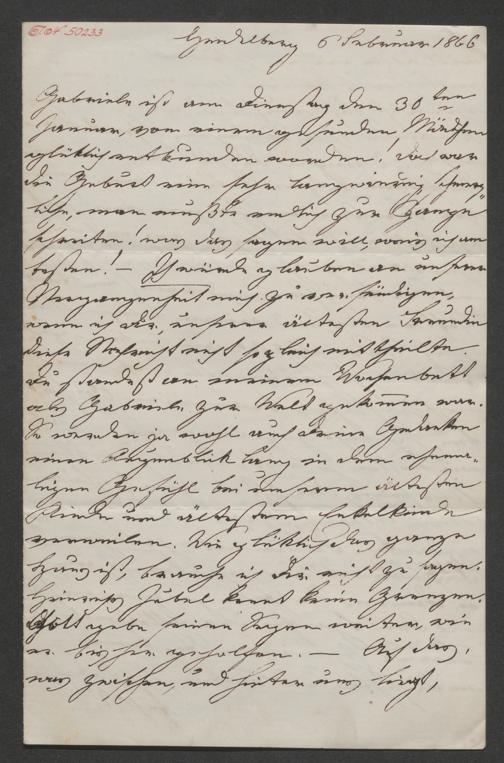 50233
Heidelberg 6 Februar 1866
Gabriele ist am Dienstag den 30ten
Januar, von einem gesunden Mädchen
glüklich entbunden worden! doch war
die Geburt eine sehr langwierig schmerz-
liche, man mußte endlich zur Zange
schreiten! was das sagen will, weiß ich am
besten! – Ich würde glauben an unserer
Vergangenheit mich zu versündigen,
wenn ich dir, unserer ältesten Freundin
diese Nachricht nicht sogleich mittheilte.
Du standest an meinem Wochenbett
als Gabriele zur Welt gekommen war.
So werden ja wohl auch deine Gedanken
einen Augenblik lang in dem ehema-
ligen Gefühl bei unserem ältesten
Kinde und ältestem Enkelkinde
verweilen. Wie glüklich das ganze
Haus ist, brauche ich dir nicht zu sagen.
Heinrichs Jubel kennt keine Grenzen.
Gott gebe seinen Segen weiter, wie
er bisher geholfen. – Auf das,
was zwischen, und hinter uns liegt,